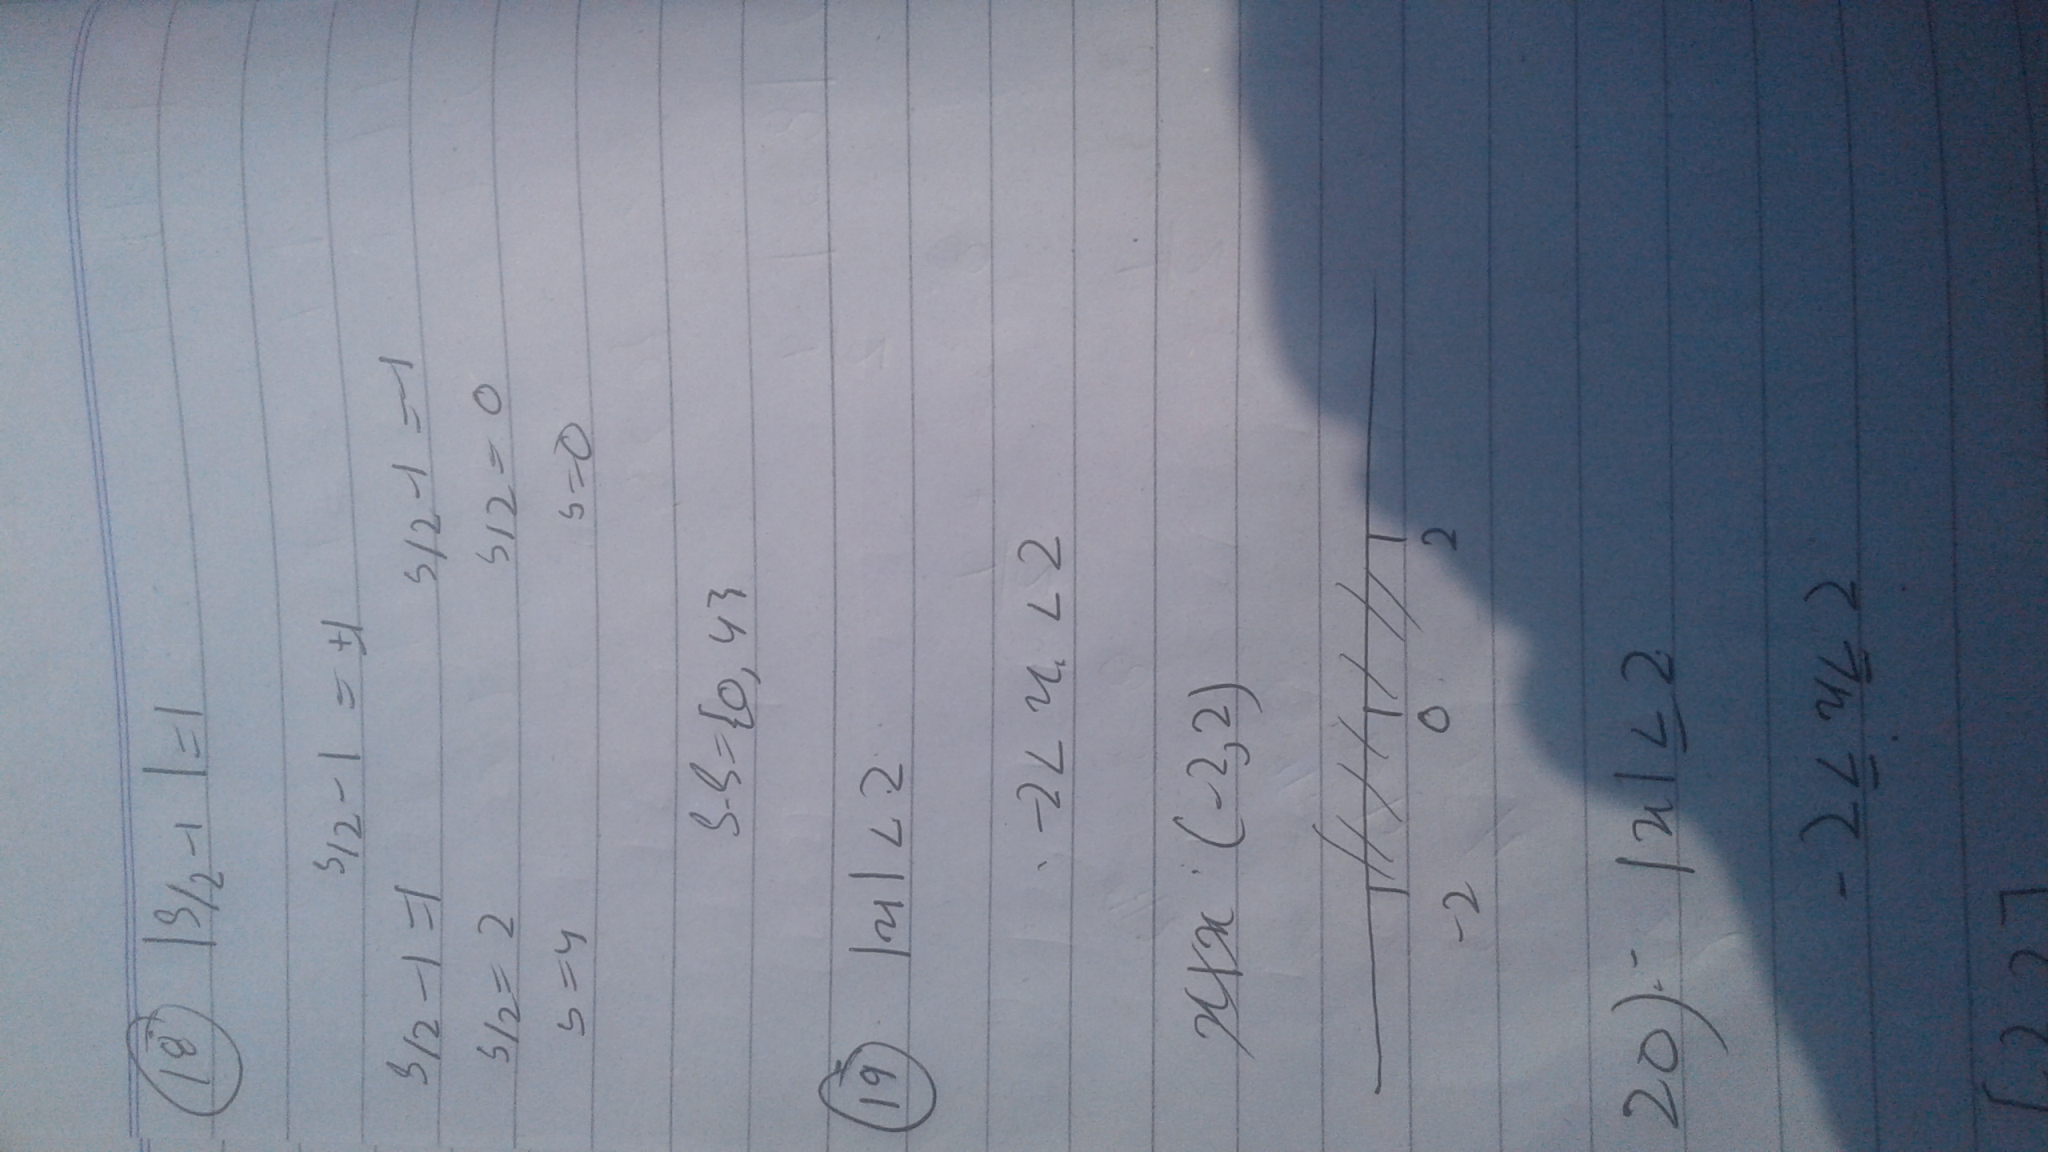 18 |S/2-1|=1
S/2-1 = ±1
S/2-1=1 S/2-1=-1
S/2=2 S/2=0
S=4 S=0
S.S={0,4}
19 |x|<2
-2<x<2
(-2,2)
-2 0 2
20):- |x|≤2
-2≤x≤2